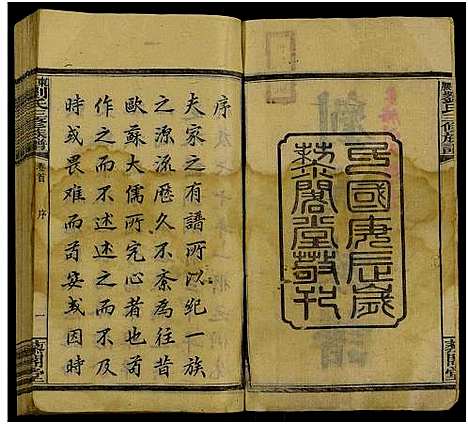 民國庚辰歲
藜閣堂敬刊
序
夫家之有譜所以紀一族
之源流歷久不紊爲往昔
歐蘇大儒所究心者也而
作之而不述述之而不及
時或畏難而苟安或因時
劉氏三修族譜
卷首
序
一
藜閣堂